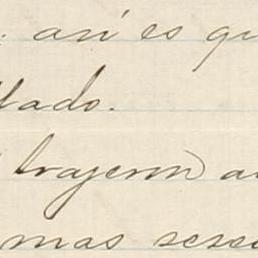 así es qu
llado.
trajeron a
mas sess